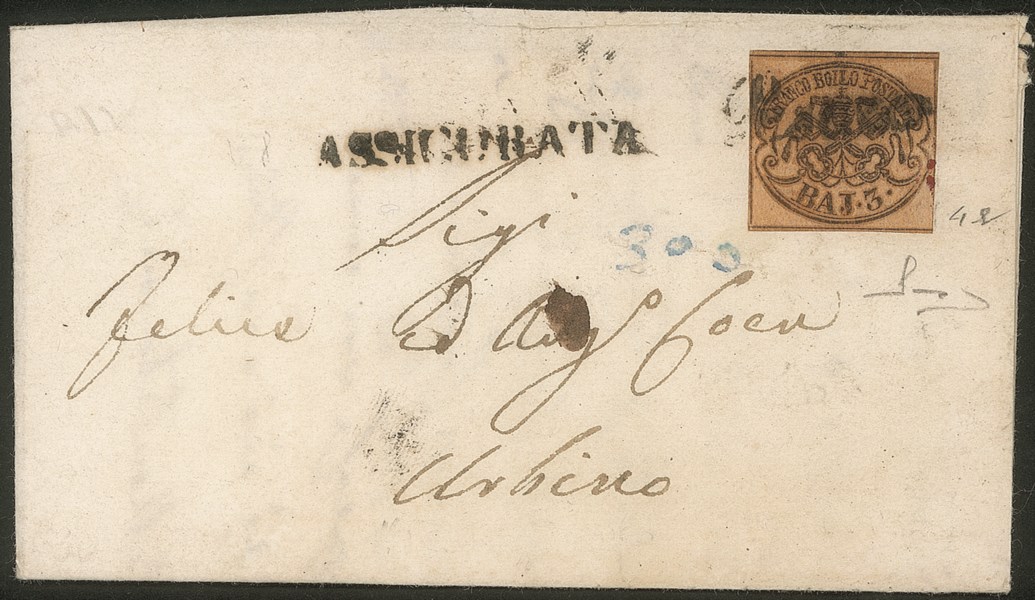 ASSICURATA
FRANCO BOLLO POSTALE
BAJ. 3.
Sigi
300
42
Felice D Ang° Coen
Urbino